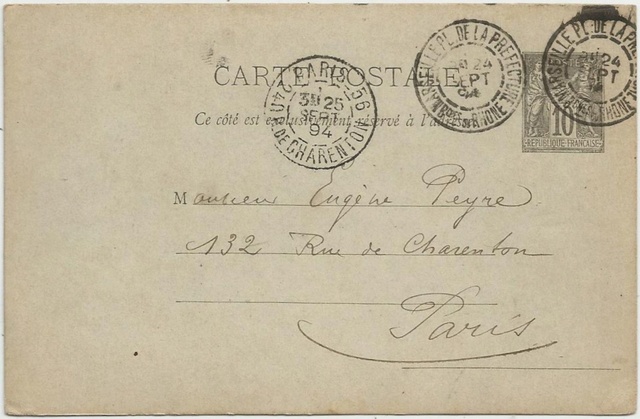 CARTE POSTALE
Ce côté est exclusivement réservé à l'adresse
MARSEILLE PL. DE LA PREFECTURE
24
SEPT
94
BCHES DU RHONE
MARSEILLE PL. DE LA PREF
24
SEPT
RHONE
10
REPUBLIQUE FRANÇAISE
PARIS-56
25
SEPT
94
R. DE CHARENTON
Monsieur Eugène Peyre
132 Rue de Charenton
Paris